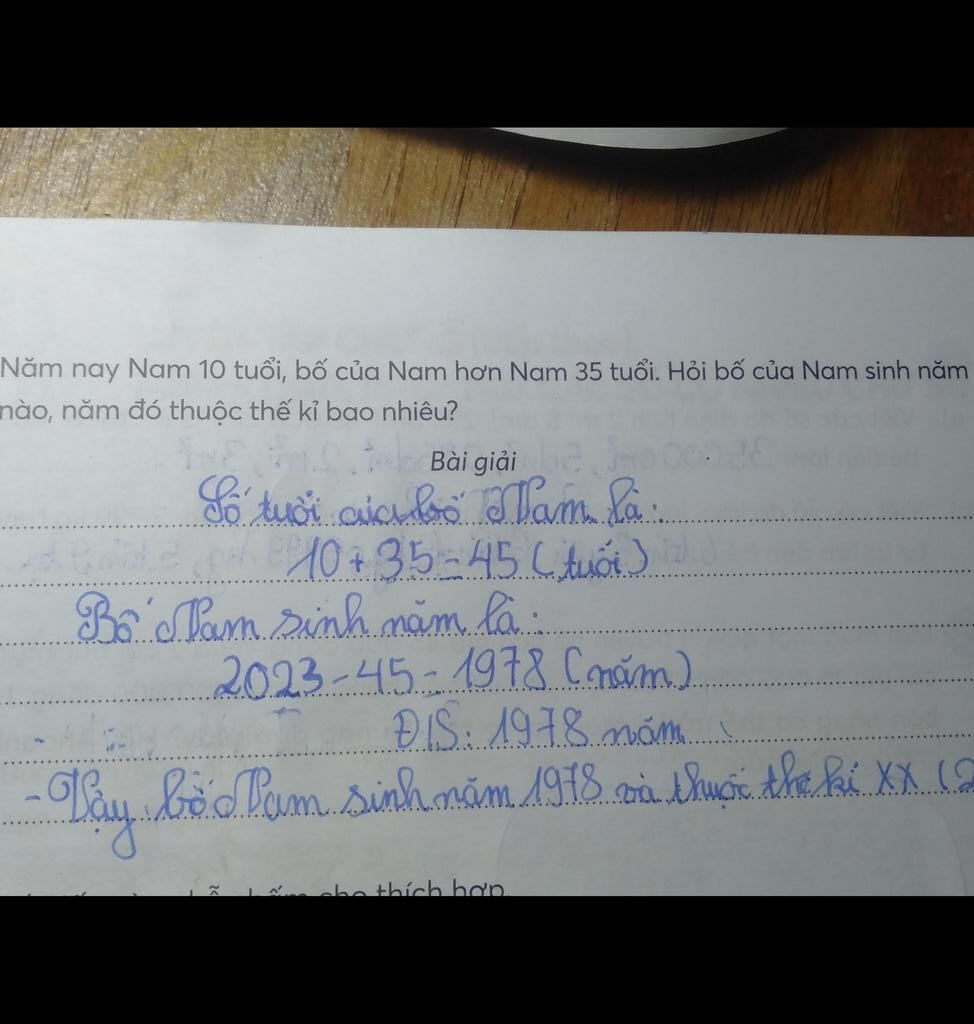 Năm nay Nam 10 tuổi, bố của Nam hơn Nam 35 tuổi. Hỏi bố của Nam sinh năm
nào, năm đó thuộc thế kỉ bao nhiêu?
Bài giải
Số tuổi của bố Nam là:
10 + 35 = 45 (tuổi)
Bố Nam sinh năm là:
2023 - 45 = 1978 (năm)
Đ/S: 1978 năm
- Vậy bố Nam sinh năm 1978 và thuộc thế kỉ XX (2
cho thích hợp